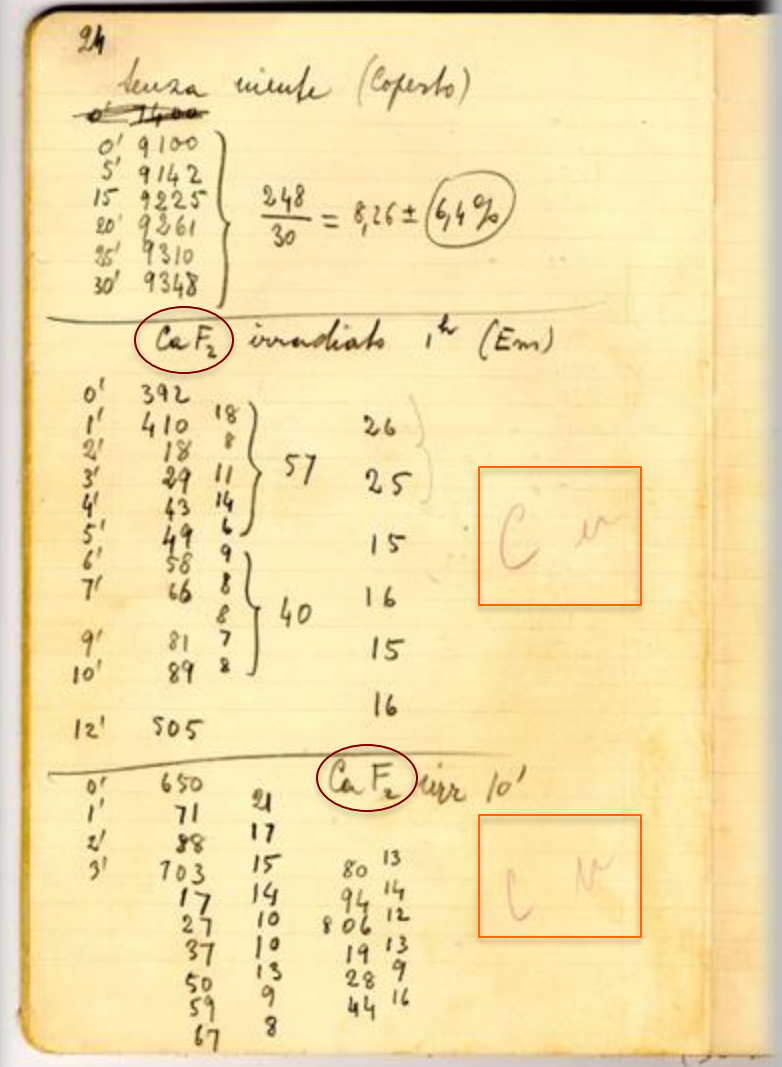 24
Senza niente (Coperto)
0' 9100
5' 9142
15 9225
20' 9261
25' 9310
30' 9348
248/30 = 8,26 ± 6,4%
CaF₂ irradiato 1ʰ (Em)
0' 392
1' 410 18
2' 18 8
3' 29 11
4' 43 14
5' 49 6
57
6' 58 9
7' 66 8
8
9' 81 7
10' 89 8
40
12' 505
26
25
15
16
15
16
C
CaF₂ irr 10'
0' 650
1' 71 21
2' 88 17
3' 703 15
17 14
27 10
37 10
50 13
59 9
67 8
80 13
94 14
806 12
19 13
28 9
44 16
C